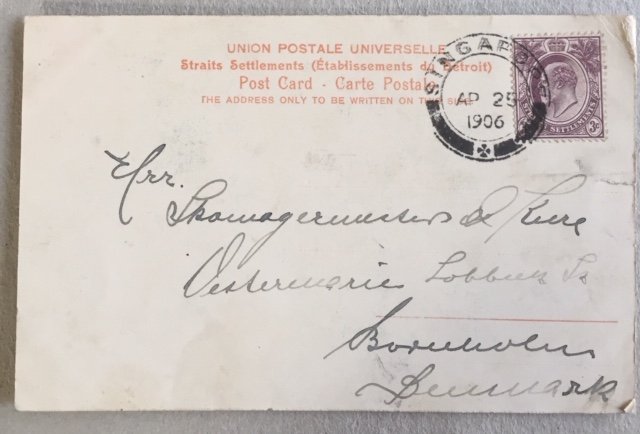 UNION POSTALE UNIVERSELLE
Straits Settlements (Établissements du Detroit)
Post Card - Carte Postale
THE ADDRESS ONLY TO BE WRITTEN ON THIS SIDE
SINGAPORE
AP 25
1906
SETTLEMENTS
Hrr.
Skomagermester
Vestermarie
Bornholm
Denmark